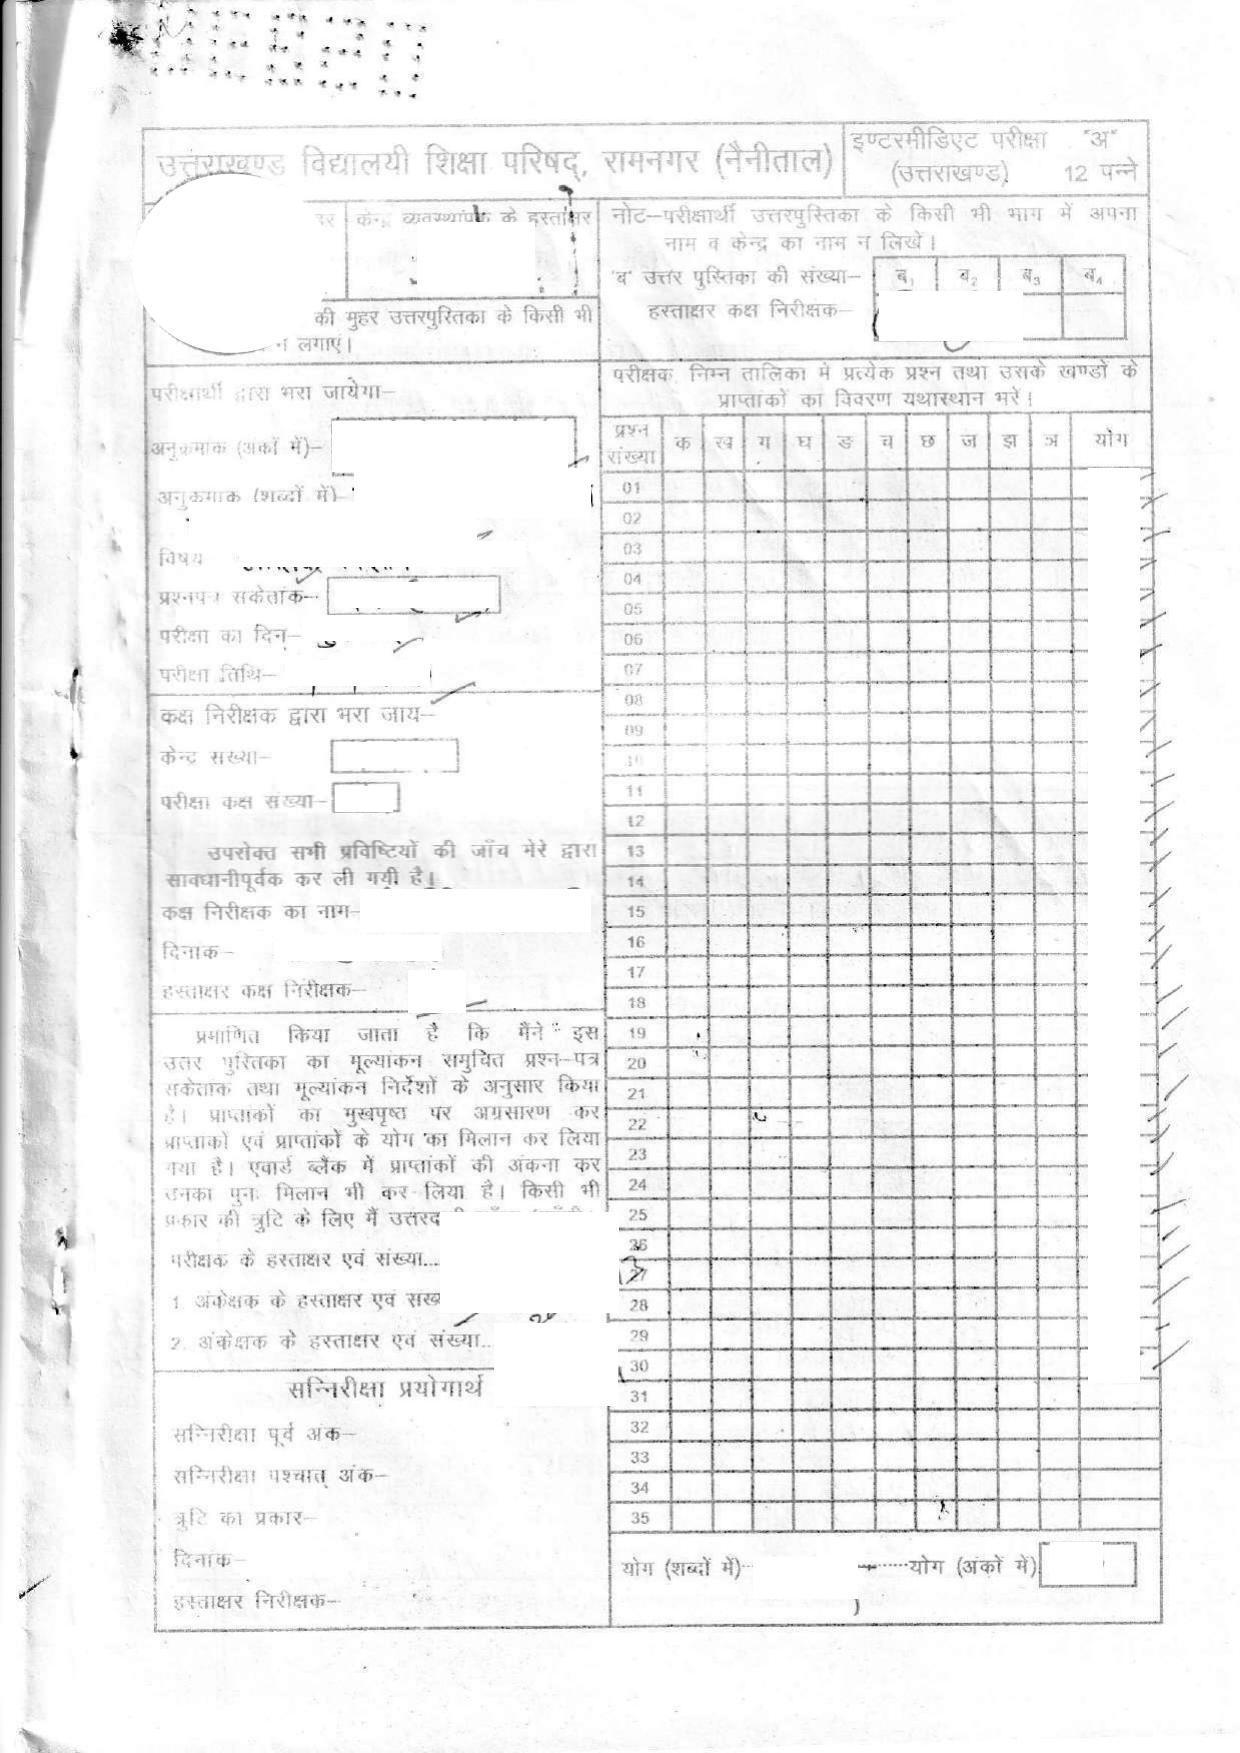 उत्तराखण्ड विद्यालयी शिक्षा परिषद्, रामनगर (नैनीताल)
इण्टरमीडिएट परीक्षा "अ"
(उत्तराखण्ड) 12 पन्ने
केन्द्र व्यवस्थापक के हस्ताक्षर
की मुहर उत्तरपुस्तिका के किसी भी
न लगाएं।
नोट–परीक्षार्थी उत्तरपुस्तिका के किसी भी भाग में अपना
नाम व केन्द्र का नाम न लिखें।
'ब' उत्तर पुस्तिका की संख्या–
ब₁ ब₂ ब₃ ब₄
हस्ताक्षर कक्ष निरीक्षक–
परीक्षार्थी द्वारा भरा जायेगा–
अनुक्रमांक (अंकों में)–
अनुक्रमांक (शब्दों में)–
विषय
प्रश्नपत्र संकेतांक–
परीक्षा का दिन–
परीक्षा तिथि–
कक्ष निरीक्षक द्वारा भरा जाय–
केन्द्र संख्या–
परीक्षा कक्ष संख्या–
उपरोक्त सभी प्रविष्टियों की जाँच मेरे द्वारा
सावधानीपूर्वक कर ली गयी है।
कक्ष निरीक्षक का नाम–
दिनांक–
हस्ताक्षर कक्ष निरीक्षक–
प्रमाणित किया जाता है कि मैंने इस
उत्तर पुस्तिका का मूल्यांकन समुचित प्रश्न–पत्र
संकेतांक तथा मूल्यांकन निर्देशों के अनुसार किया
है। प्राप्तांकों का मुखपृष्ठ पर अग्रसारण कर
प्राप्तांकों एवं प्राप्तांकों के योग का मिलान कर लिया
गया है। एवार्ड ब्लैंक में प्राप्तांकों की अंकना कर
उनका पुनः मिलान भी कर लिया है। किसी भी
प्रकार की त्रुटि के लिए मैं
परीक्षक के हस्ताक्षर एवं संख्या...
1. अंकेक्षक के हस्ताक्षर एवं
2. अंकेक्षक के हस्ताक्षर एवं संख्या..
सन्निरीक्षा प्रयोगार्थ
सन्निरीक्षा पूर्व अंक–
सन्निरीक्षा पश्चात् अंक–
त्रुटि का प्रकार–
दिनांक–
हस्ताक्षर निरीक्षक–
परीक्षक निम्न तालिका में प्रत्येक प्रश्न तथा उसके खण्डों के
प्राप्तांकों का विवरण यथास्थान भरें।
प्रश्न संख्या क ख ग घ ङ च छ ज झ ञ योग
01
02
03
04
05
06
07
08
09
10
11
12
13
14
15
16
17
18
19
20
21
22
23
24
25
26
27
28
29
30
31
32
33
34
35
योग (शब्दों में)– योग (अंकों में)